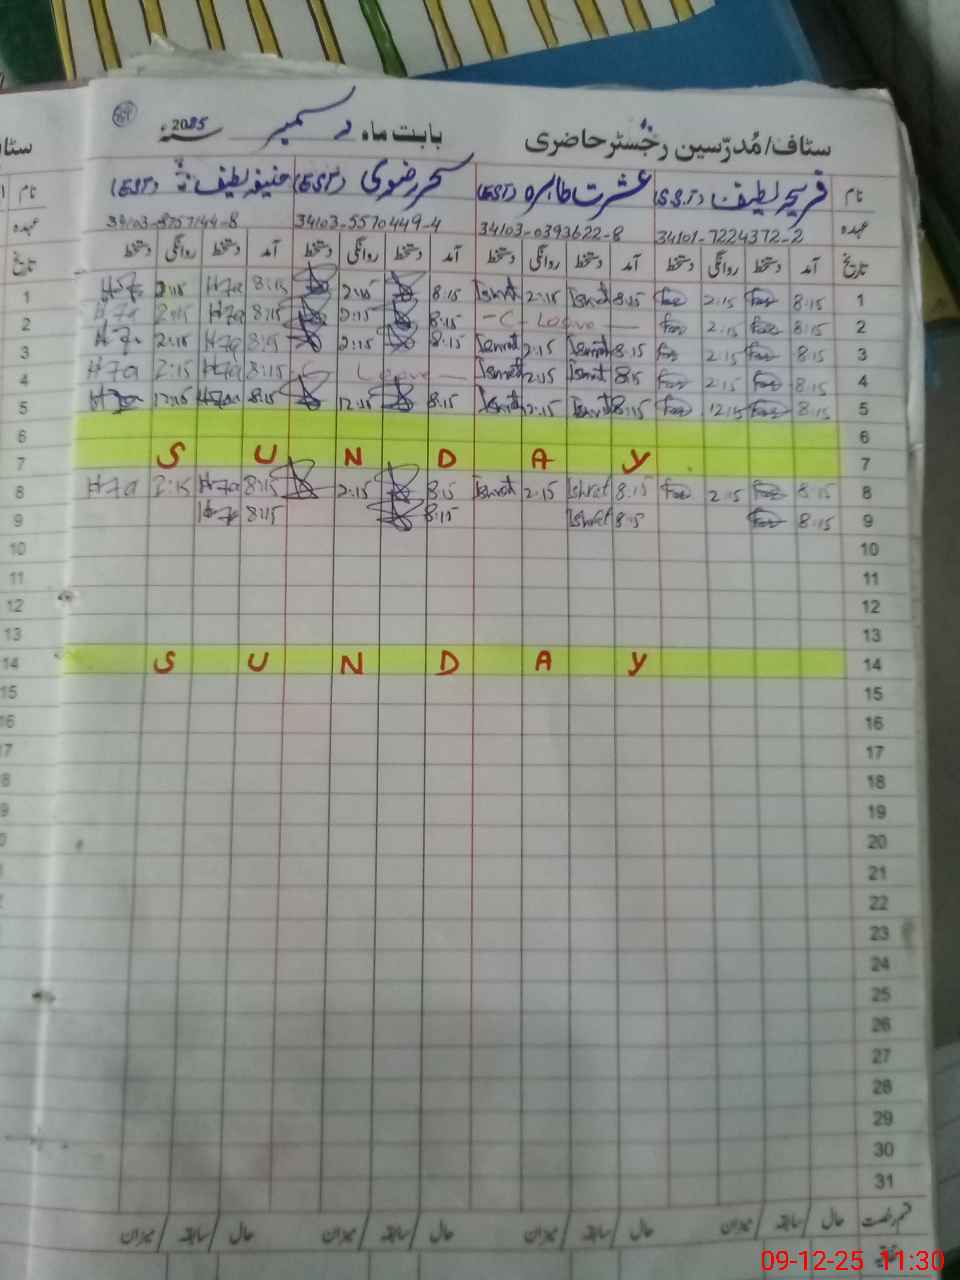 سٹاف/مُدرّسین رجسٹر حاضری بابت ماہ دسمبر 2025
نام فریحہ لطیف (S.S.T) عشرت طاہرہ (EST) سحر رضوی (EST) حنیفہ لطیف (EST)
عہدہ 34101-7224372-2 34103-0393622-8 34103-5570449-4 34103-8757144-8
تاریخ آمد دستخط روانگی دستخط آمد دستخط روانگی دستخط آمد دستخط روانگی دستخط آمد دستخط روانگی دستخط
1 8:15 2:15 8:15 Ishrat 2:15 Ishrat 8:15 2:15 8:15 H7a 2:15
2 8:15 2:15 -C-Leave- 8:15 2:15 8:15 H7a 2:15 H7a
3 8:15 2:15 8:15 Ishrat 2:15 Ishrat 8:15 2:15 8:15 H7a 2:15
4 8:15 2:15 8:15 Ishrat 2:15 Ishrat Leave 8:15 H7a 2:15 H7a
5 8:15 12:15 8:15 Ishrat 12:15 Ishrat 8:15 12:15 8:15 H7a 12:15
6
7 S U N D A Y
8 8:15 2:15 8:15 Ishrat 2:15 Ishrat 8:15 2:15 8:15 H7a 2:15 H7a
9 8:15 8:15 Ishrat 8:15 8:15
10
11
12
13
14 S U N D A Y
15
16
17
18
19
20
21
22
23
24
25
26
27
28
29
30
31
قسم رخصت حال / سابقہ / میزان حال / سابقہ / میزان حال / سابقہ / میزان حال / سابقہ / میزان
09-12-25 11:30